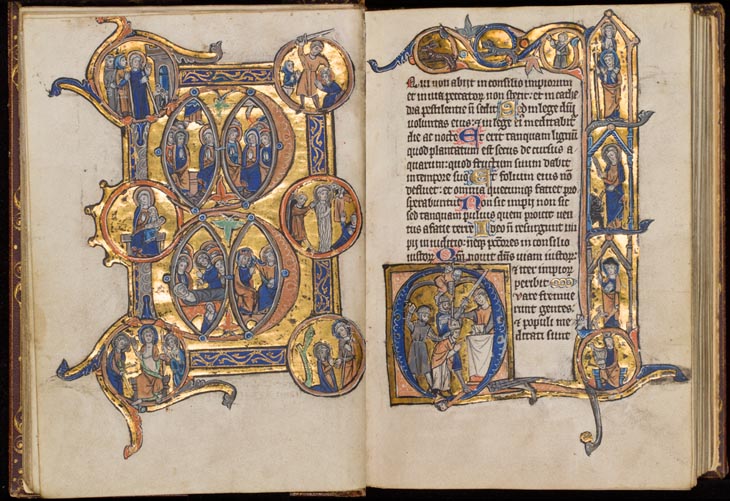 qui non abijt in consilio impiorum
et in uia peccatorum non stetit: et in cathe
dra pestilentie nō sedit Sed in lege dn̄i
uoluntas eius: et in lege ei᷒ meditabit᷑
die ac nocte Et erit tanquam lignum
quod plantatum est secus decursus a
quarum: quod fructum suum dabit
in tempore suo Et folium eius nō
defluet: et omnia quecunque faciet pro
sperabuntur Non sic impij non sic
sed tanquam puluis quem proicit uen
tus a facie terre Ideo nō resurgunt im
pij in iuditio: neqꝫ pctores in consilio
iustorꝝ Qm̄ nouit dn̄s uiam iustorꝝ
& iter impiorꝝ
peribit
Quare fremue
runt gentes
& populi me
ditati sunt